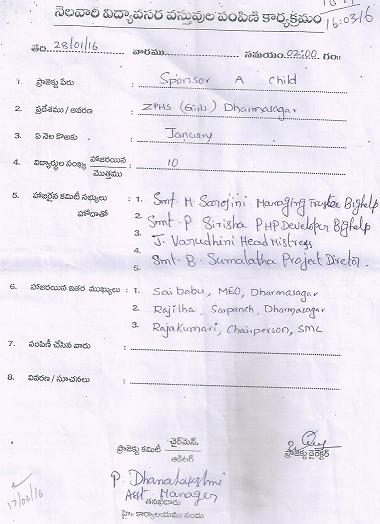 నెలవారీ విద్యావసర వస్తువుల పంపిణీ కార్యక్రమం
16:03/16
తేది. 28/01/16 వారము సమయం. 02:00 గం॥
1. ప్రాజెక్టు పేరు : Sponsor A child
2. ప్రదేశము / ఆవరణ : ZPHS (Girls) Dharmasagar
3. ఏ నెల కొఱకు : January
4. విద్యార్థుల సంఖ్య హాజరయిన మొత్తము : 10
5. హాజరైన కమిటీ సభ్యులు హోదాతో : 1. Smt. M Sarojini Managing Trustee Bighelp
2. Smt. P Sirisha PHP Developer Bighelp
3. J. Varudhini Head Mistress
4. Smt. B. Sumalatha Project Diretor.
5.
6. హాజరయిన ఇతర ముఖ్యులు : 1. Sai babu, MEO, Dharmasagar
2. Rajilha, Sarpanch, Dharmasagar
3. Rajakumari, Chairperson, SMC
7. పంపిణీ చేసిన వారు :
8. వివరణ / సూచనలు :
ప్రాజెక్టు కమిటీ చైర్‌మెన్. ఆడిటర్
ప్రాజెక్టు డైరెక్టర్
P. Dhanalakshmi
Asst. Manager
తనిఖీదారు
హె॥ కార్యాలయము నందు
17/03/16